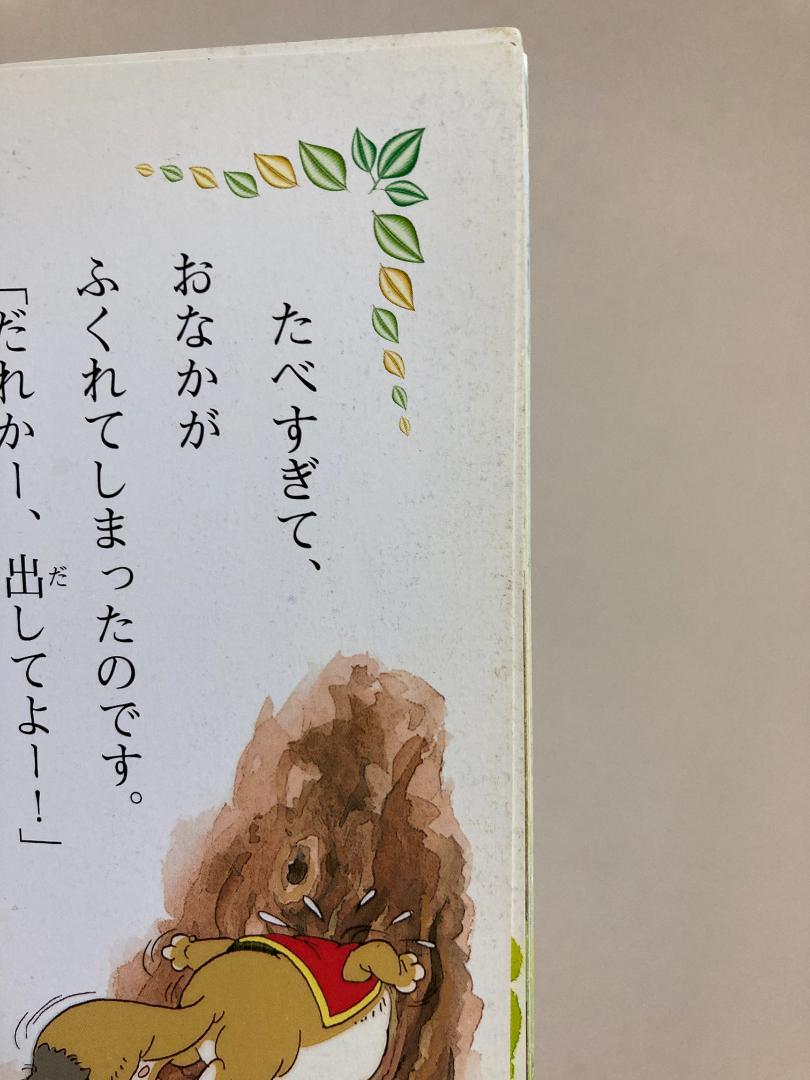 たべすぎて、
おなかが
ふくれてしまったのです。
「だれかー、出してよー！」
だ